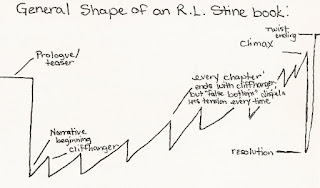 General Shape of an R.L. Stine book:
Prologue/
teaser
Narrative
beginning
cliffhanger
every chapter
ends with cliffhanger,
but "false bottom" dispels
tension every time
twist
ending
Climax
resolution